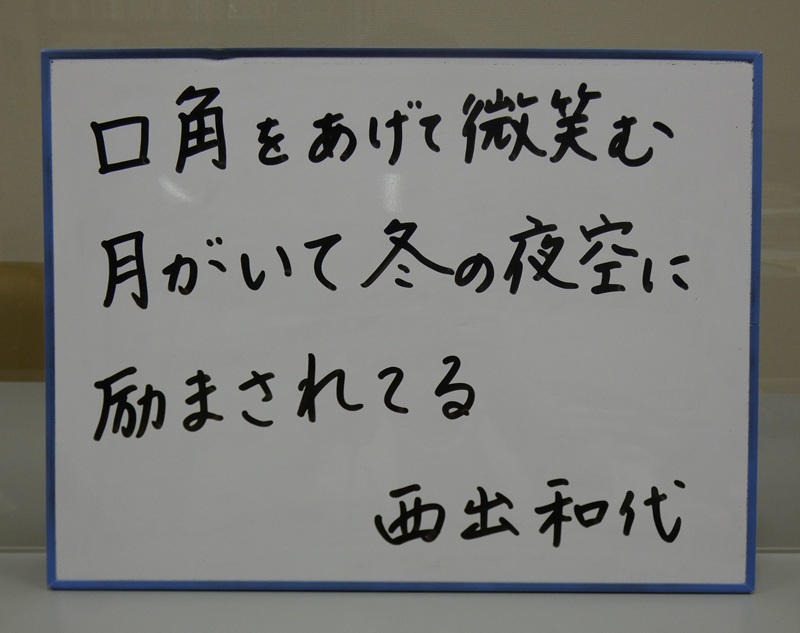 口角をあげて微笑む
月がいて冬の夜空に
励まされてる
西出和代